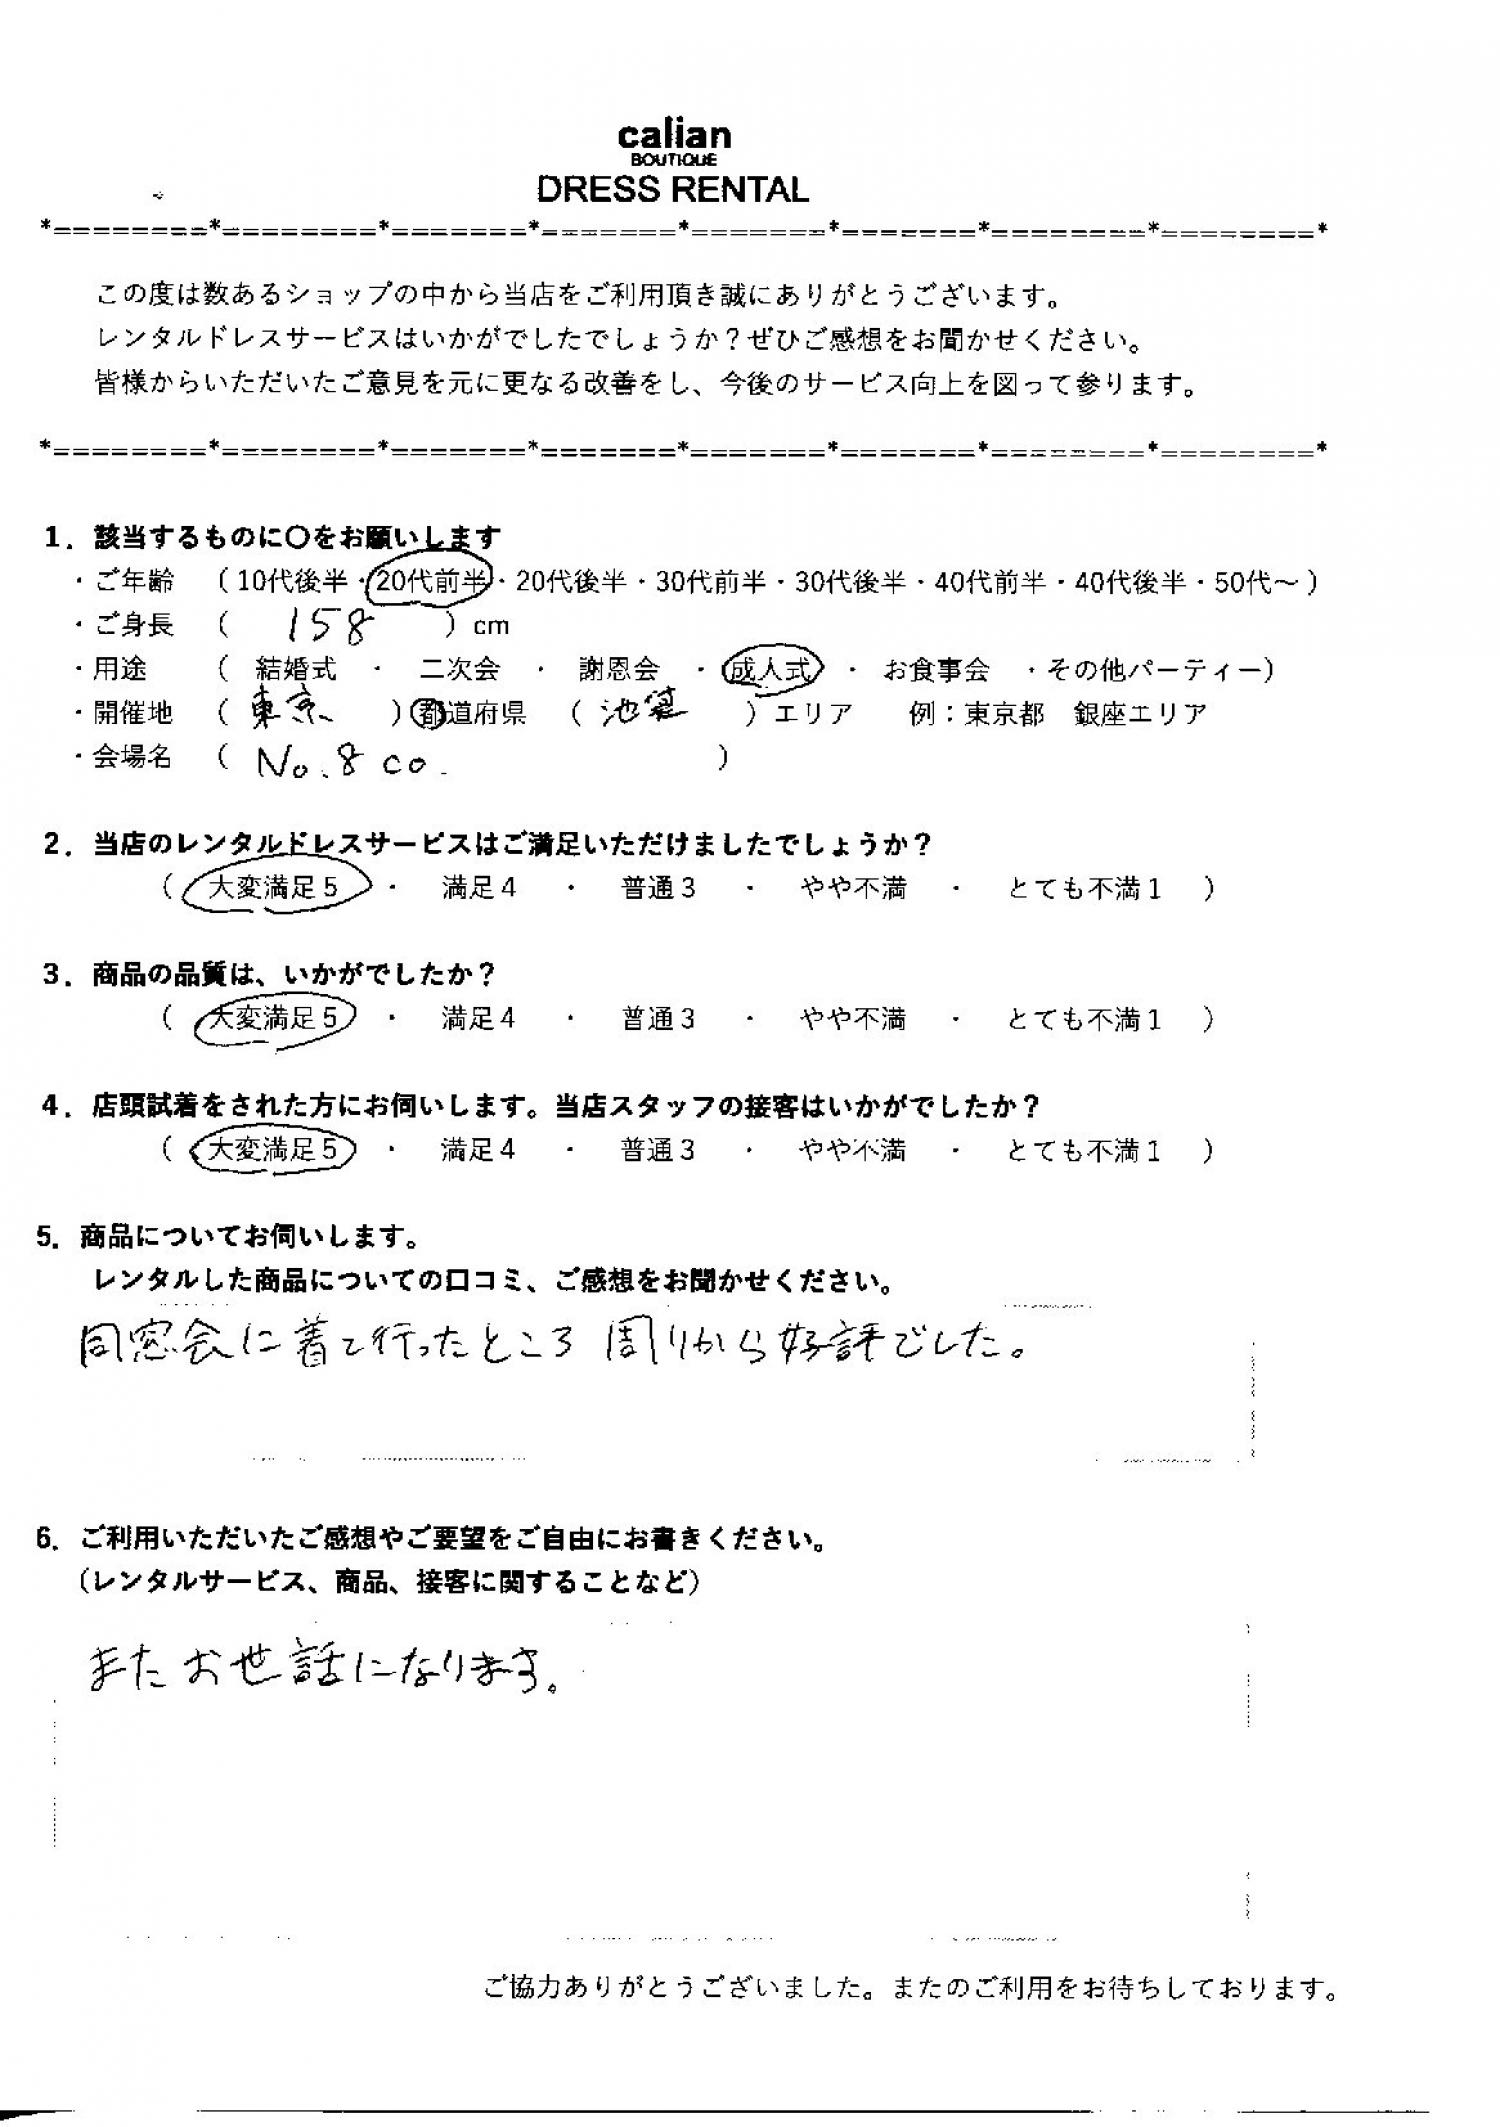 calian
BOUTIQUE
DRESS RENTAL
*========*========*=======*=======*=======*=======*========*========*
この度は数あるショップの中から当店をご利用頂き誠にありがとうございます。
レンタルドレスサービスはいかがでしたでしょうか？ぜひご感想をお聞かせください。
皆様からいただいたご意見を元に更なる改善をし、今後のサービス向上を図って参ります。
*========*========*=======*=======*=======*=======*========*========*
1．該当するものに〇をお願いします
・ご年齢　（10代後半・20代前半・20代後半・30代前半・30代後半・40代前半・40代後半・50代～）
・ご身長　（　158　）cm
・用途　（　結婚式　・　二次会　・　謝恩会　・　成人式　・　お食事会　・その他パーティー）
・開催地　（　東京　）都道府県　（　池袋　）エリア　例：東京都　銀座エリア
・会場名　（　No.8 co.　）
2．当店のレンタルドレスサービスはご満足いただけましたでしょうか？
（　大変満足５　・　満足４　・　普通３　・　やや不満　・　とても不満１　）
3．商品の品質は、いかがでしたか？
（　大変満足５　・　満足４　・　普通３　・　やや不満　・　とても不満１　）
4．店頭試着をされた方にお伺いします。当店スタッフの接客はいかがでしたか？
（　大変満足５　・　満足４　・　普通３　・　やや不満　・　とても不満１　）
5．商品についてお伺いします。
レンタルした商品についての口コミ、ご感想をお聞かせください。
同窓会に着て行ったところ 周りから好評でした。
6．ご利用いただいたご感想やご要望をご自由にお書きください。
（レンタルサービス、商品、接客に関することなど）
またお世話になります。
ご協力ありがとうございました。またのご利用をお待ちしております。